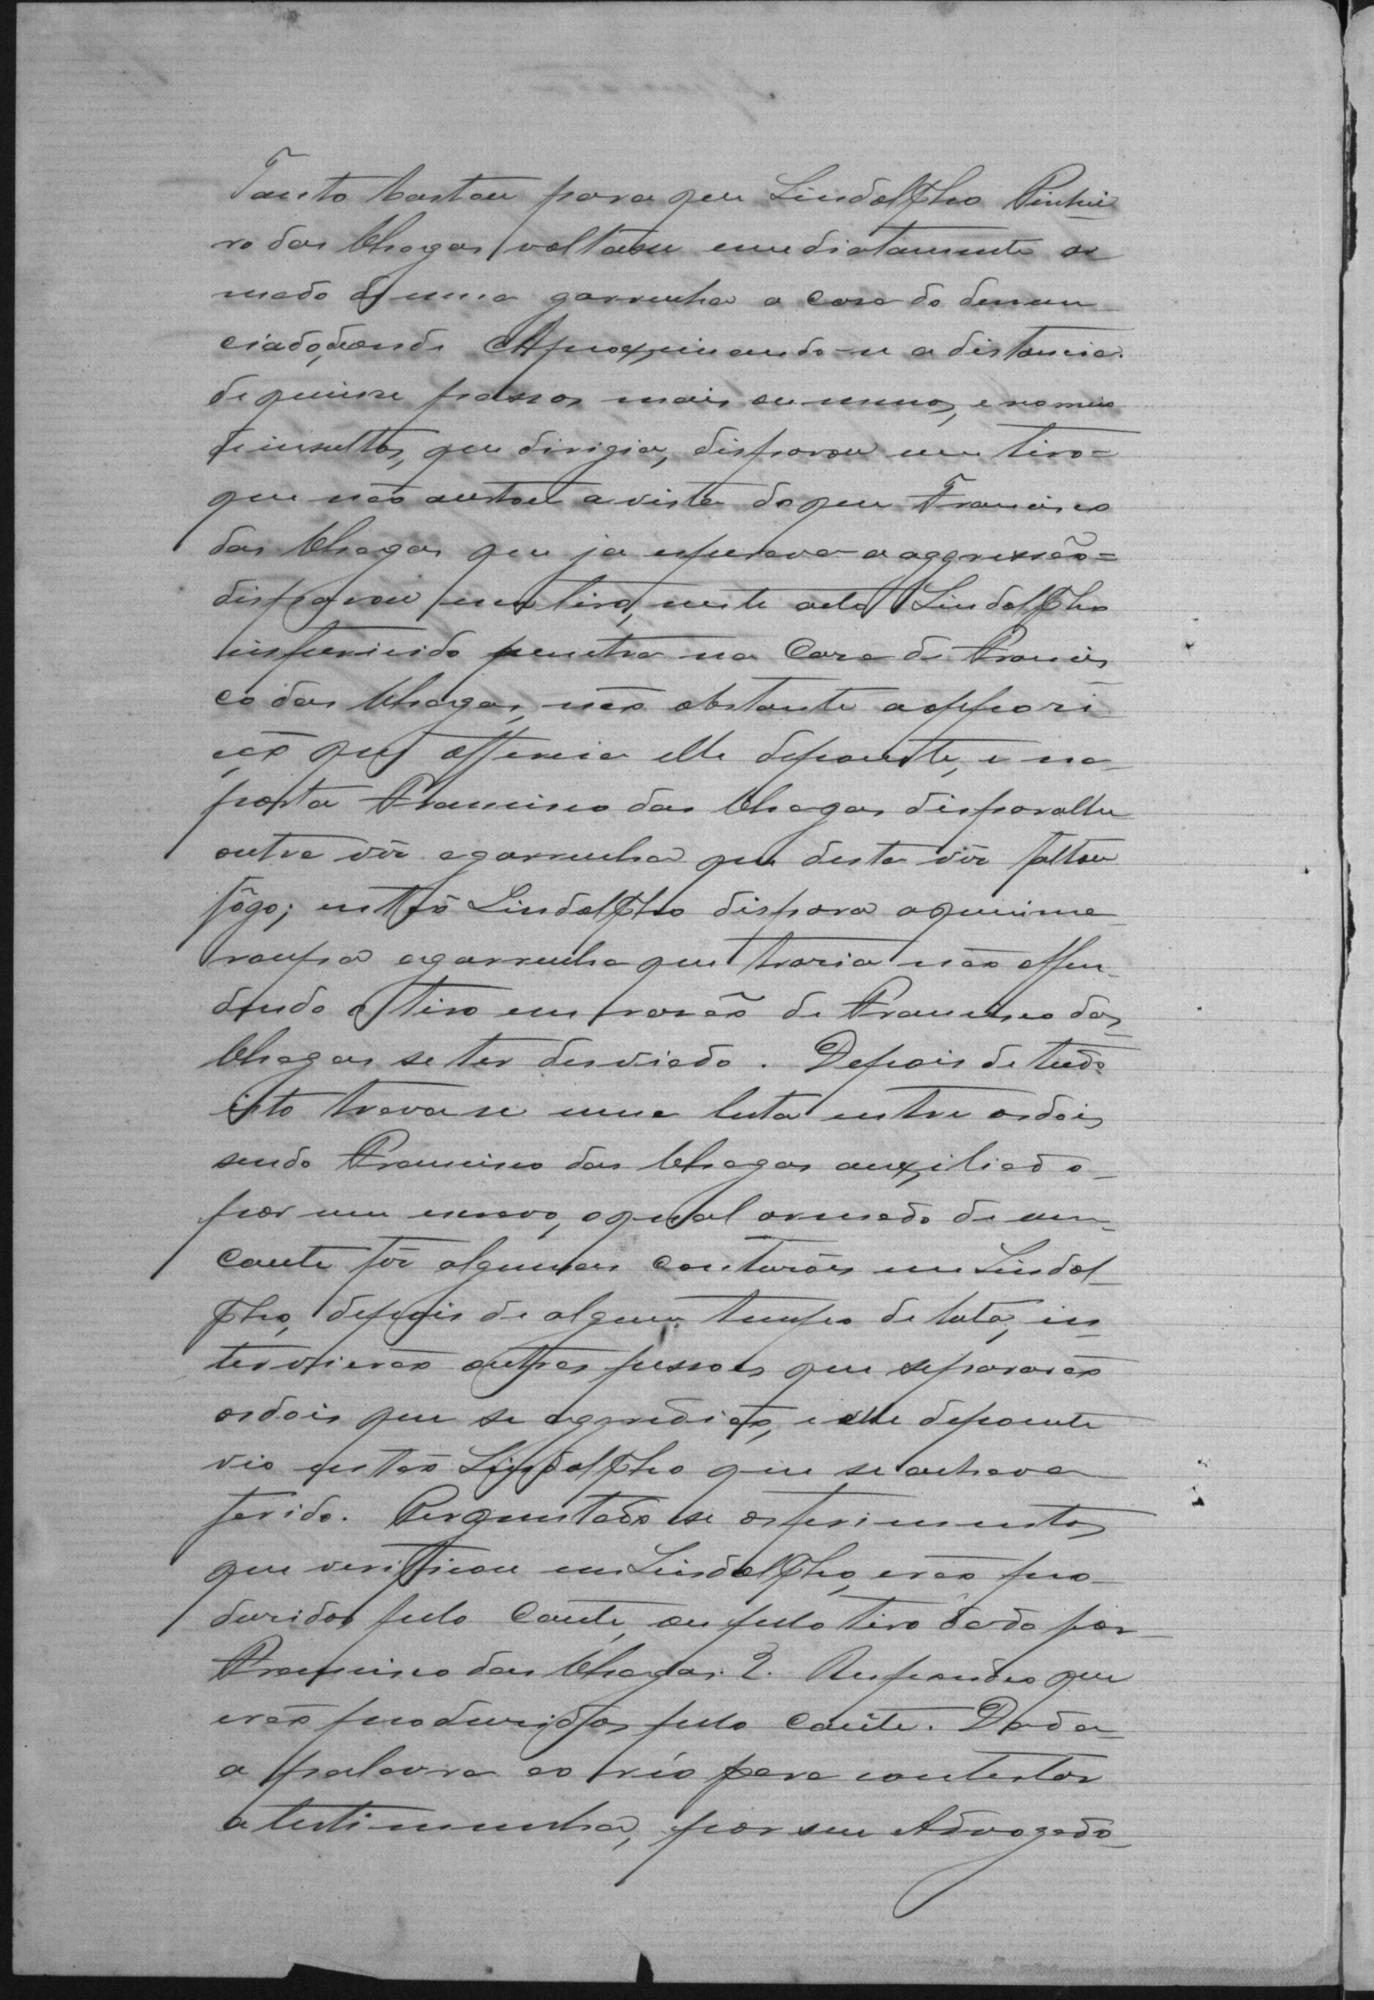 Tanto bastou para que Lindolpho Pinhei-
ro das Chagas voltasse immediatamente ar
mado de uma garrucha a casa do denun
ciado, d'onde Approximando-se a distancia
de quinze passos mais ou menos, e no meio
de insultos, que dirigia, disparou um tiro=
que não acertou a vista do que Francisco
das Chagas que ja esperava a aggressão=
disparou um tiro, neste acto Lindolpho
infurecido penetra na Casa de Francis
co das Chagas, não obstante a opposi
ção que offerecia elle depoente, e na
porta Francisco das Chagas disparalhe
outra vêz a garrucha que desta vêz faltou
fôgo; então Lindolpho dispara a queima
roupa a garrucha que trazia não offen-
dendo o tiro em razão de Francisco das
Chagas se ter desviado. Depois de tudo
isto trava se uma luta entre os dois
sendo Francisco das Chagas auxiliado
por um escravo, o qual armado de um
caceite fêz algumas contusões em Lindol-
pho, depois de algum tempo de luta, in
tervierão outras pessoas que separarão
os dois que se agredião, e elle depoente
vio então Lindolpho que se achava
ferido. Perguntado se os ferimentos
que verificou em Lindolpho, erão pro-
duzidos pelo caceite, ou pelo tiro dado por
Francisco das Chagas? Respondeo que
erão produzidos pelo caceite. Dada
a palavra ao réo para contestar
a testimunha, por seu Advogado